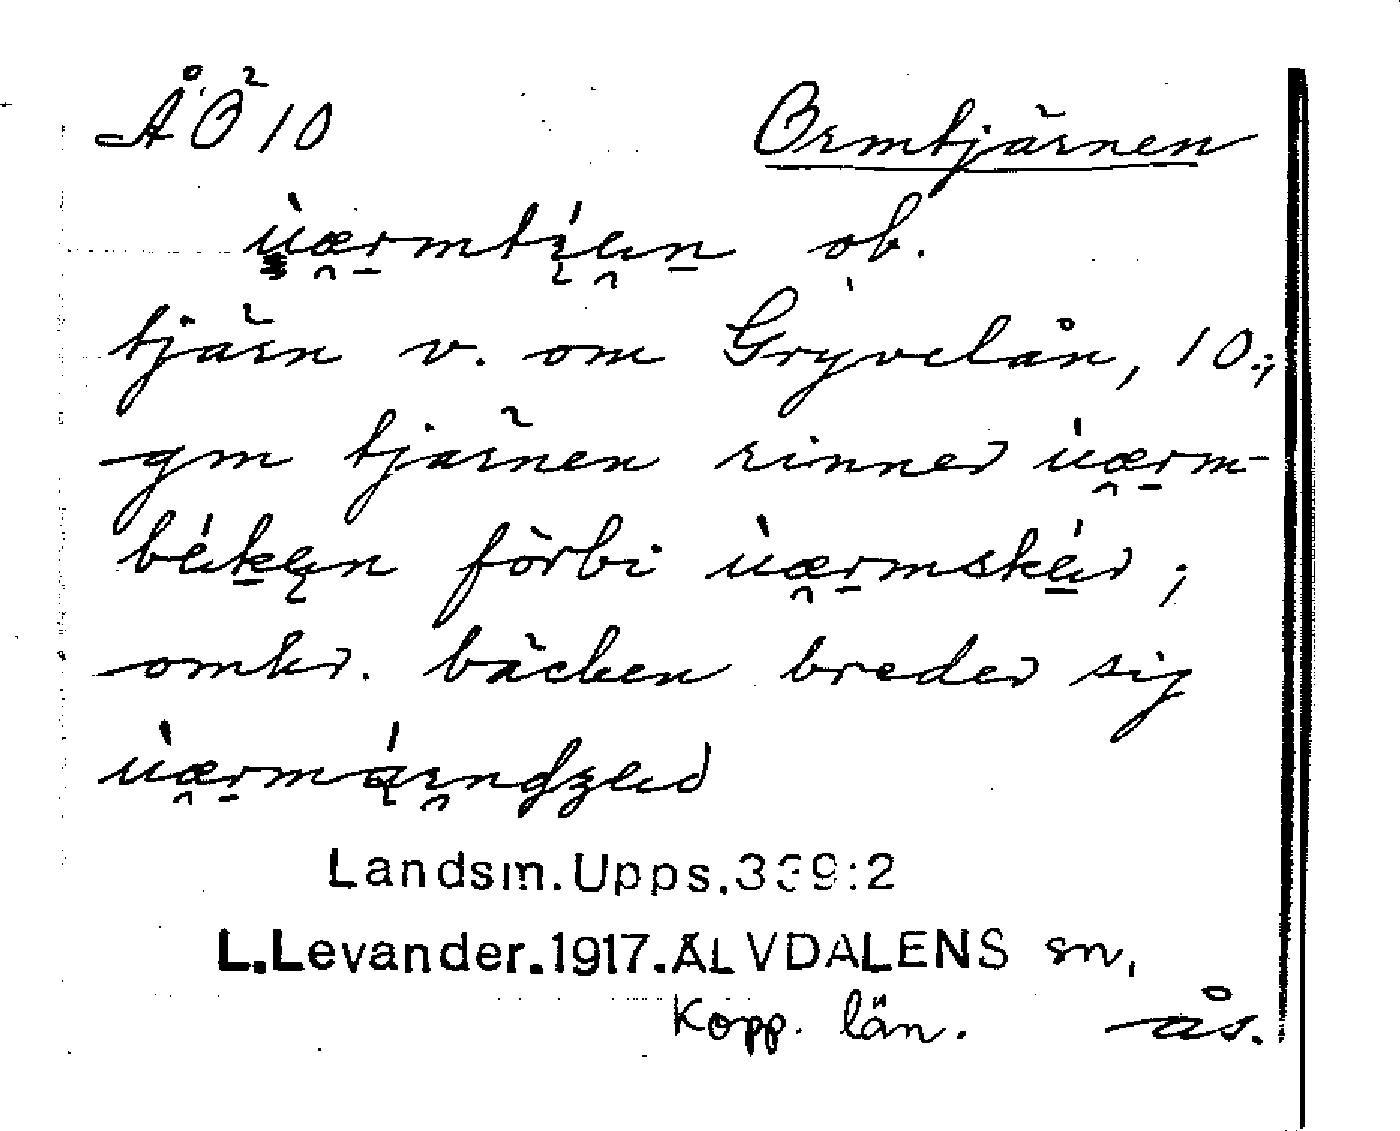 ÅÖ 10 Ormtjärnen
ob.
tjärn v. om Gryvelån, 10.;
gm tjärnen rinner ùærm-
förbi ùærmskér ;
omkr. bäcken breder sig
Landsm.Upps.339:2
L.Levander.1917.ÄLVDALENS sn,
Kopp. län. ås.